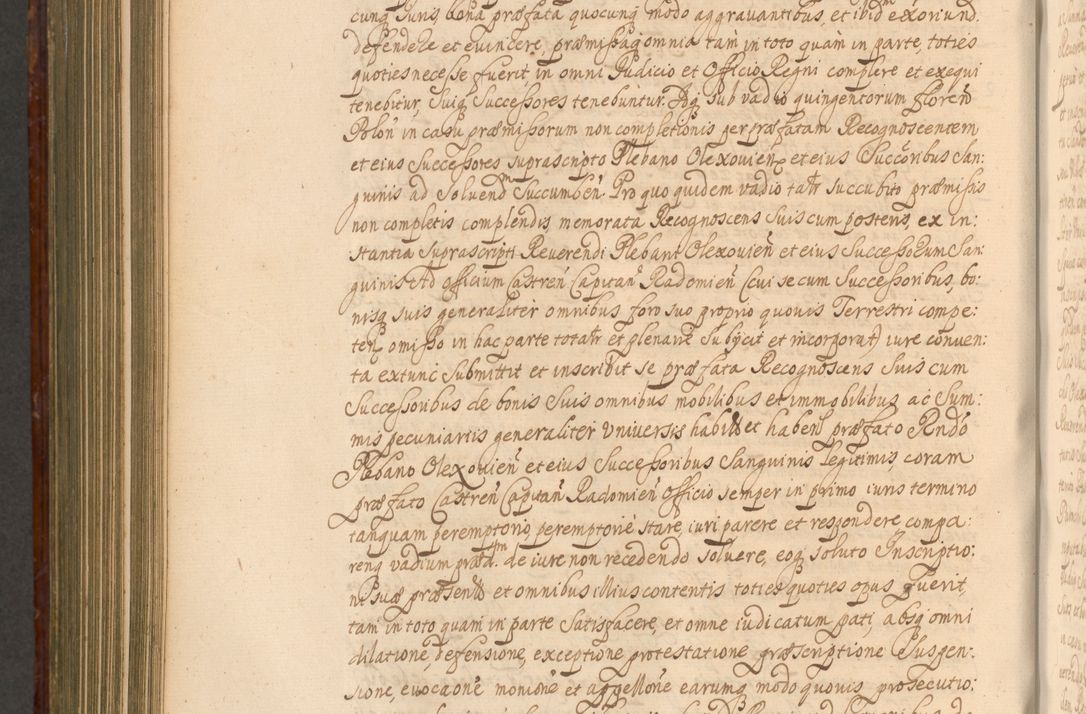 cunq Juris bona præfata quocunq modo aggravantibus, et ibidem exoriund.
defendere et evincere, præmissaq omnia tam in toto quam in parte, toties
quoties necesse fuerit in omni Judicio et Officio Regni complere et exequi
tenebitur, Suiq Successores tenebuntur. Atq sub vadio quingentorum floreñ
Poloñ in casu præmissorum non completionis per præfatam Recognoscentem
et eius Successores suprascripto Plebano Olexovieñ et eius Succoribus San:
guinis ad Solvendm Succumbeñ. Pro quo quidem vadio tatr succubito præmissis
non completis complendis, memorata Recognoscens suis cum posteris, ex in:
stantia suprascripti Reverendi Plebani Olexovieñ et eius Successorum San:
guinis Ad officium Castreñ Capitañ Radomieñ (cui se cum Successoribus, bo:
nisq suis generaliter omnibus foro suo proprio quovis Terrestri compe:
teñ omisso in hac parte totatr et plenarie subijcit et incorporat) iure conven:
ta extunc submittit et inscribit se præfata Recognoscens suis cum
Successoribus de bonis suis omnibus mobilibus et immobilibus ac Sum:
mis pecuniariis generaliter universis habitis et habeñ præfato Rndo
Plebano Olexovieñ et eius Successoribus Sanguinis legitimis, coram
præfato Castreñ Capitañ Radomieñ Officio semper in primo iuris termino
tanquam peremptorio, peremptorie stare, iuri parere et respondere, compa:
renq vadium prætatm. de iure non recedendo solvere, eoq soluto Inscriptio:
ni suæ præsenti et omnibus illius contentis toties quoties opus fuerit,
tam in toto quam in parte satisfacere, et omne iudicatum pati, absq omni
dilatione, defensione, exceptione protestatione præscriptione Suspen:
sione, evocaone monione et appellone earumq modo quovis prosecutio: